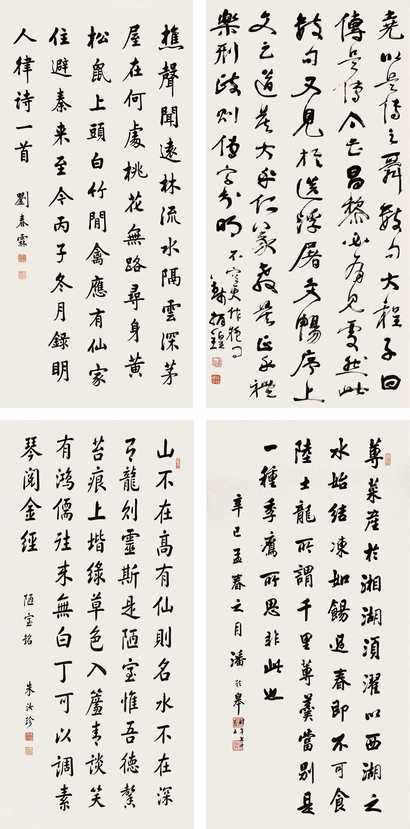 堯以是傳之舜數句大程子曰
傳是傳个甚昌黎必有見處然此
數句又見於送浮屠文暢序上
文之道莫大乎仁義教莫正乎禮
樂刑政則傳字分明
錢振鍠
樵聲聞遠林流水隔雲深茅
屋在何處桃花無路尋身黃
松鼠上頭白竹閒禽應有仙家
住避秦来至今丙子冬月錄明
人律诗一首
劉春霖
蓴菜產於湘湖須濯以西湖之
水始结凍如餳過春即不可食
陸士龍所謂千里蓴羹當別是
一種季鷹所思非此也
辛巳孟春之月潘齡皋
山不在高有仙則名水不在深
有龍則靈斯是陋室惟吾德馨
苔痕上堦緑草色入簾青談笑
有鸿儒往来無白丁可以調素
琴阅金經
陋室铭
朱汝珍